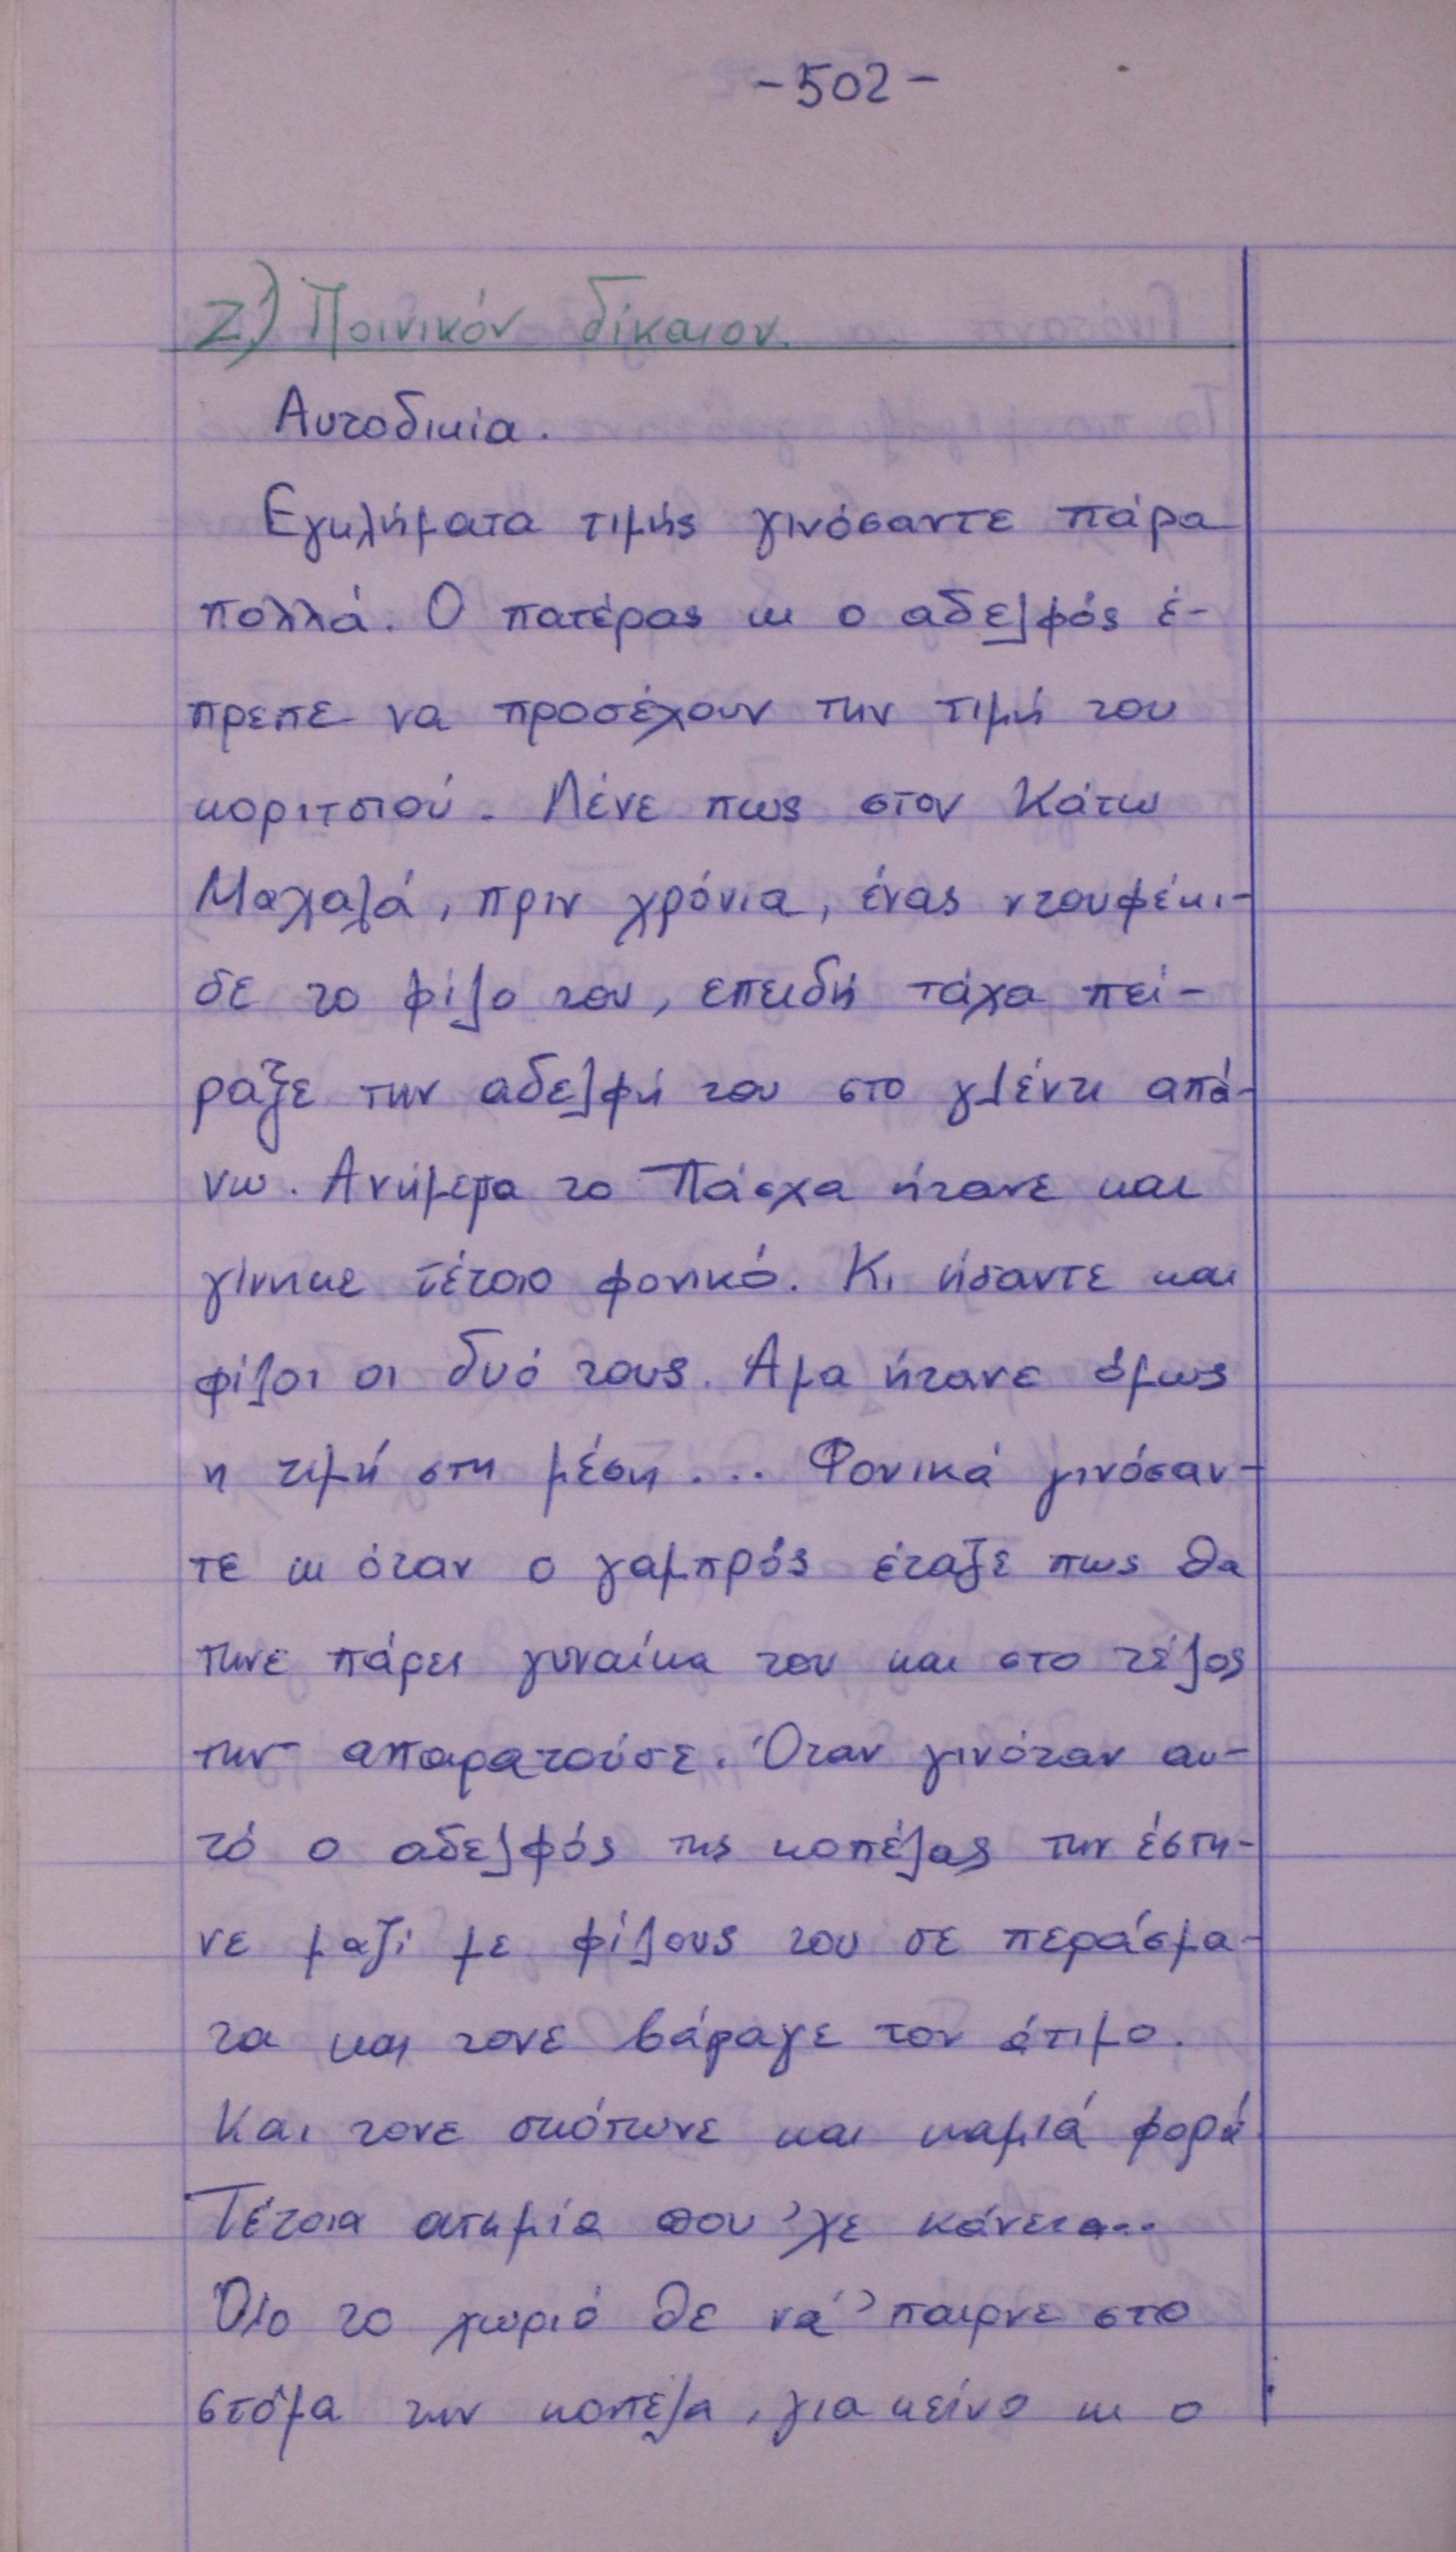 -502-
Ζ') Ποινικόν δίκαιον.
Αυτοδικία.
Εγκλήματα τιμής γινόσαντε πάρα
πολλά. Ο πατέρας κι ο αδελφός έ-
πρεπε να προσέχουν την τιμή του
κοριτσιού. Λένε πως στον Κάτω
Μαχαλά, πριν χρόνια, ένας ντουφέκι-
σε το φίλο του, επειδή τάχα πεί-
ραξε την αδελφή του στο γλέντι απά-
νω. Ανήμερα το Πάσχα ήτανε και
γίνηκε τέτοιο φονικό. Κι ήσαντε και
φίλοι οι δυό τους. Αμα ήτανε όμως
η τιμή στη μέση... Φονικά γινόσαν-
τε κι όταν ο γαμπρός έταξε πως θα
τηνε πάρει γυναίκα του και στο τέλος
την απαρατούσε. Όταν γινόταν αυ-
τό ο αδελφός της κοπέλας την έστη-
νε μαζί με φίλους του σε περάσμα-
τα και τονε βάραγε τον άτιμο.
Και τονε σκότωνε και καμιά φορά
Τέτοια ατιμία που 'χε κάνει...
Όλο το χωριό θε νά 'παιρνε στο
στόμα την κοπέλα, για κείνο κι ο